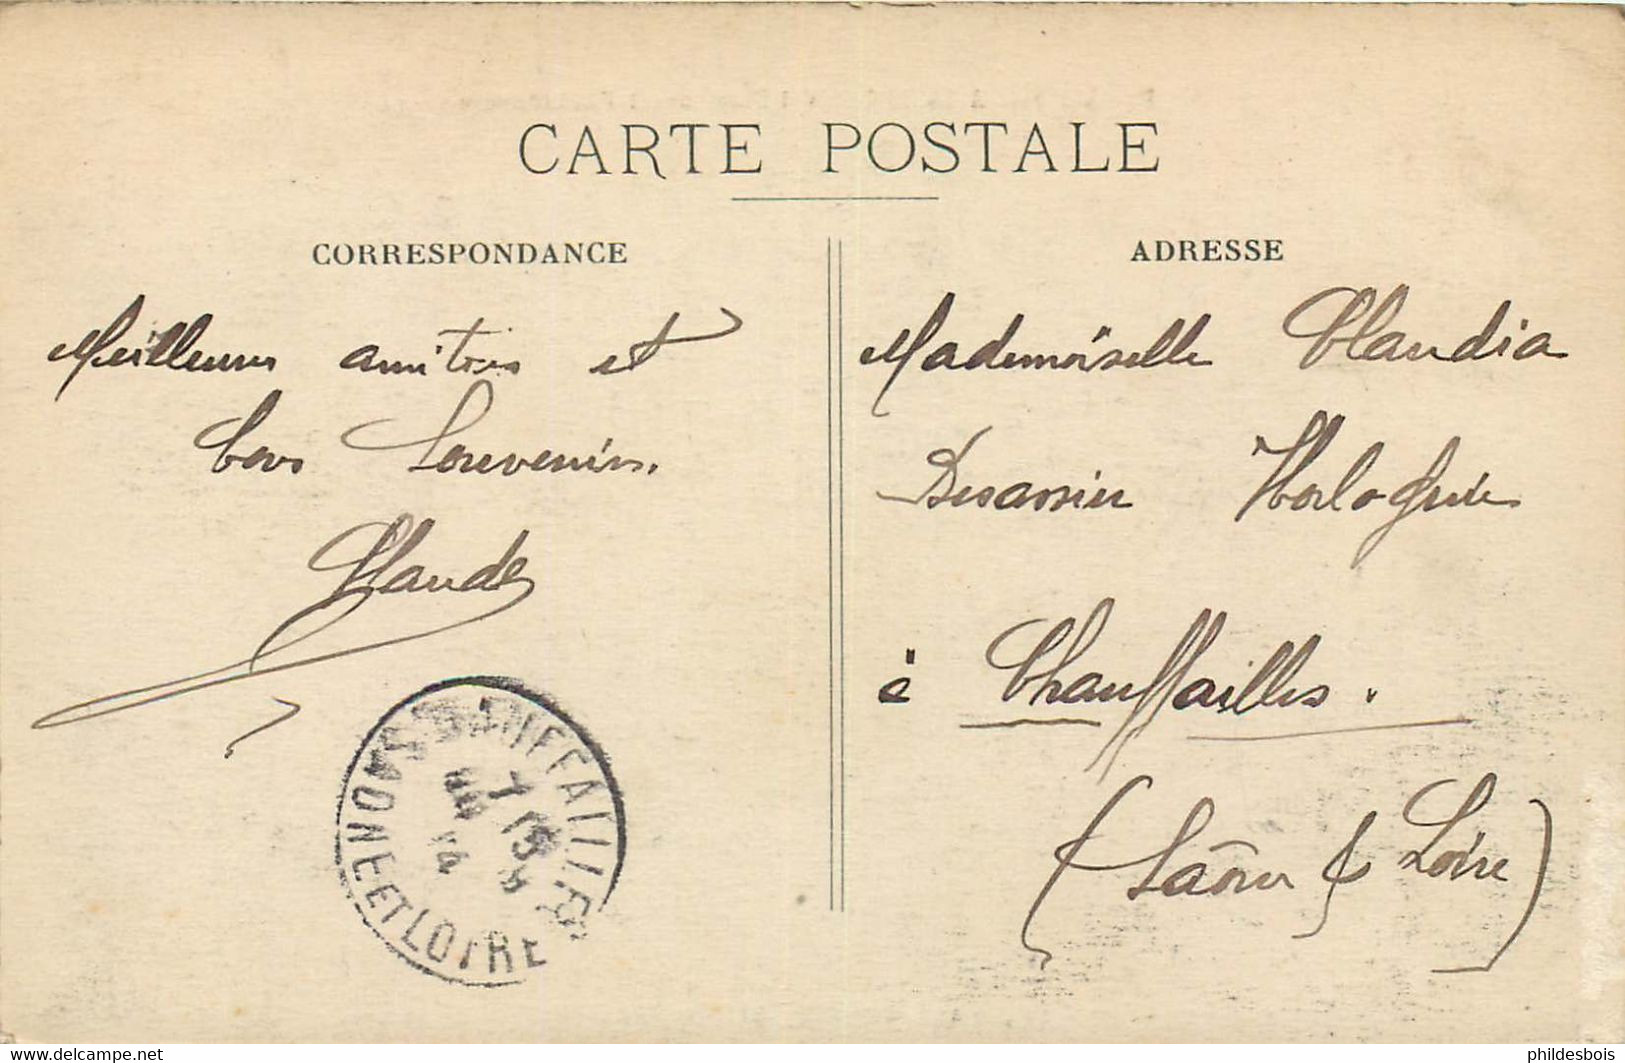 CARTE POSTALE
CORRESPONDANCE
Meilleures amitiés et
bons Souvenirs.
Claude
CHAUFFAILLES
SAONE ET LOIRE
7 15
14
ADRESSE
Mademoiselle Claudia
Horlogerie
à Chauffailles.
(Saône & Loire)
www.delcampe.net
phildesbois